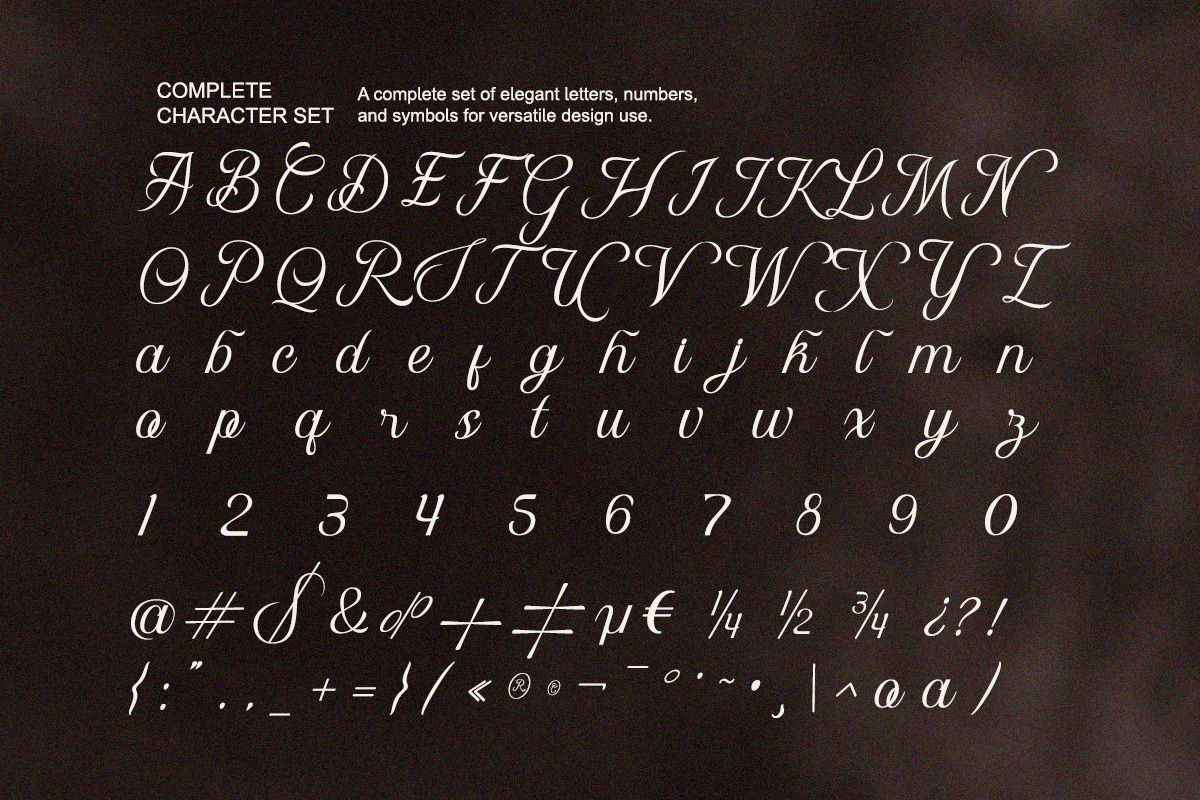 COMPLETE
CHARACTER SET
A complete set of elegant letters, numbers,
and symbols for versatile design use.
A B C D E F G H I J K L M N
O P Q R S T U V W X Y Z
a b c d e f g h i j k l m n
o p q r s t u v w x y z
1 2 3 4 5 6 7 8 9 0
@ # $ & % + ≠ µ € ¼ ½ ¾ ¿ ? !
{ : " . , _ + = } ( « ® © ¬ ¯ ° · ~ • ¸ | ^ º ª )